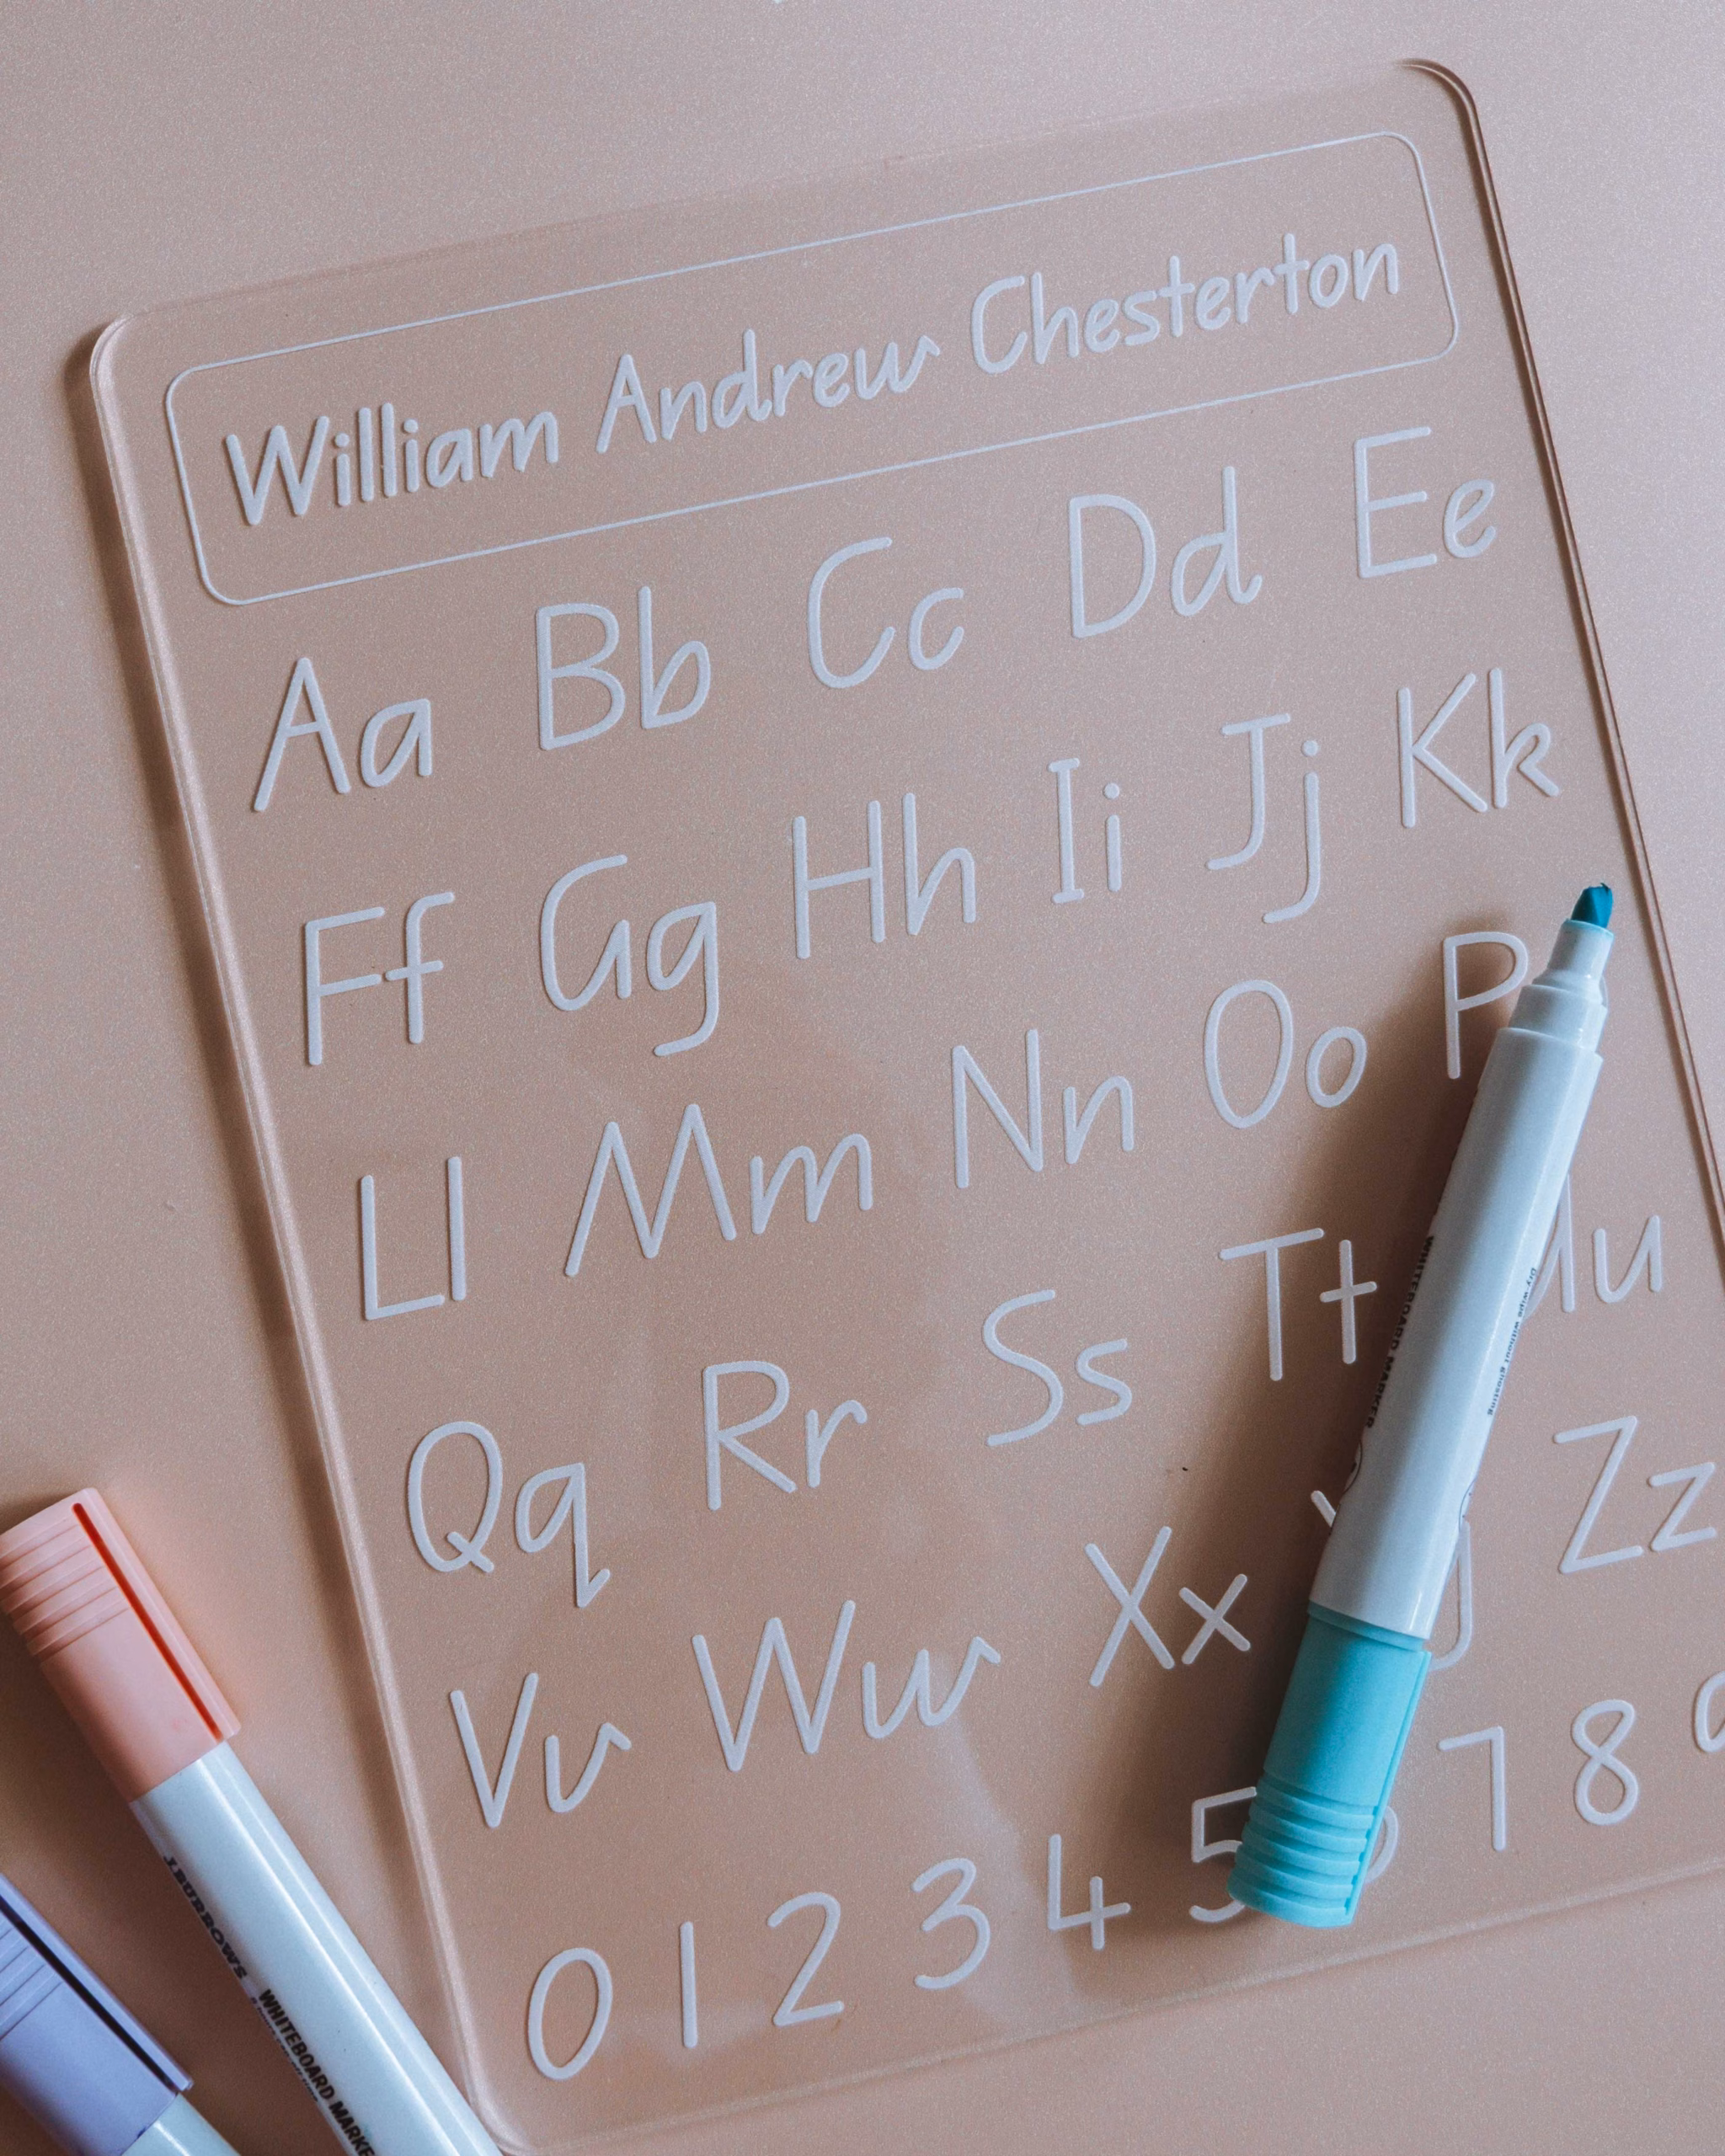 William Andrew Chesterton
Aa Bb Cc Dd Ee
Ff Gg Hh Ii Jj Kk
Ll Mm Nn Oo P
Qq Rr Ss Tt Uu
Vv Ww Xx Zz
0 1 2 3 4 5 7 8
WHITEBOARD MARKER
Dry-wipe without ghosting
BURROWS
WHITEBOARD MARKE